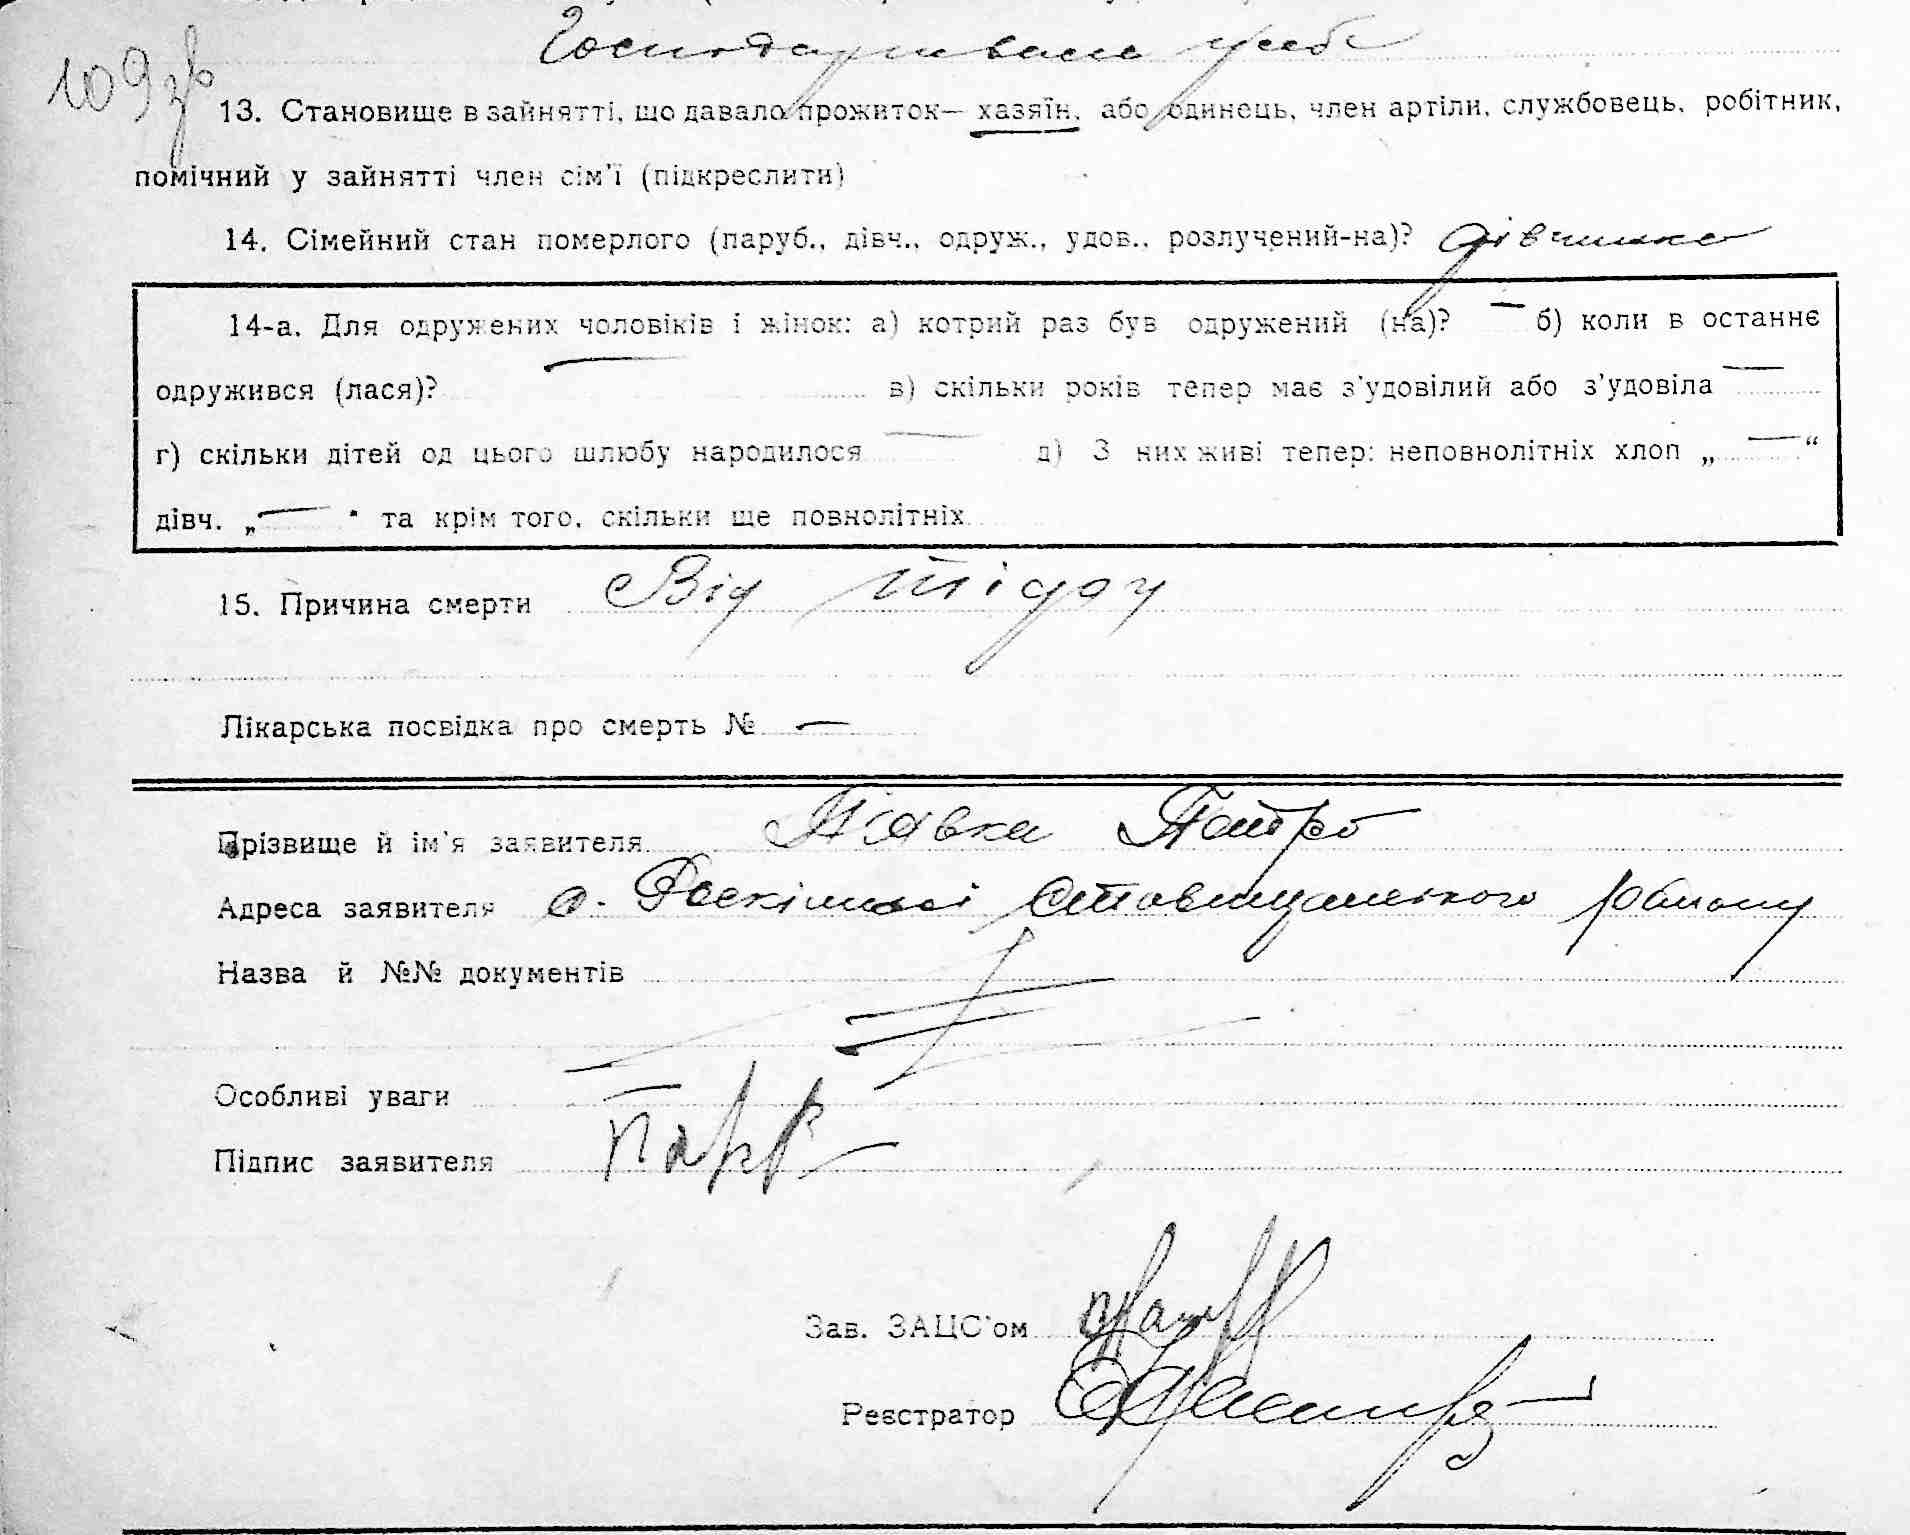 109 зв
Господарювала у себе
13. Становище в зайнятті, що давало прожиток— хазяїн, або одинець, член артіли, службовець, робітник,
помічний у зайнятті член сім'ї (підкреслити)
14. Сімейний стан померлого (паруб., дівч., одруж., удов., розлучений-на)? дівчинка
14-а. Для одружених чоловіків і жінок: а) котрий раз був одружений (на)? — б) коли в останнє
одружився (лася)? — в) скільки років тепер має з'удовілий або з'удовіла —
г) скільки дітей од цього шлюбу народилося — д) З них живі тепер: неповнолітніх хлоп „—“
дівч. „—" та крім того, скільки ще повнолітніх
15. Причина смерти Від
Лікарська посвідка про смерть № —
Прізвище й ім'я заявителя Піявка Петро
Адреса заявителя с. Розкішної Ставищанського району
Назва й №№ документів
Особливі уваги
Підпис заявителя
Зав. ЗАЦС'ом
Реєстратор